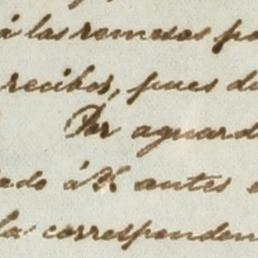 á las remesas pa
recibos, pues de
Por aguard
edo á V. antes e
la corresponden